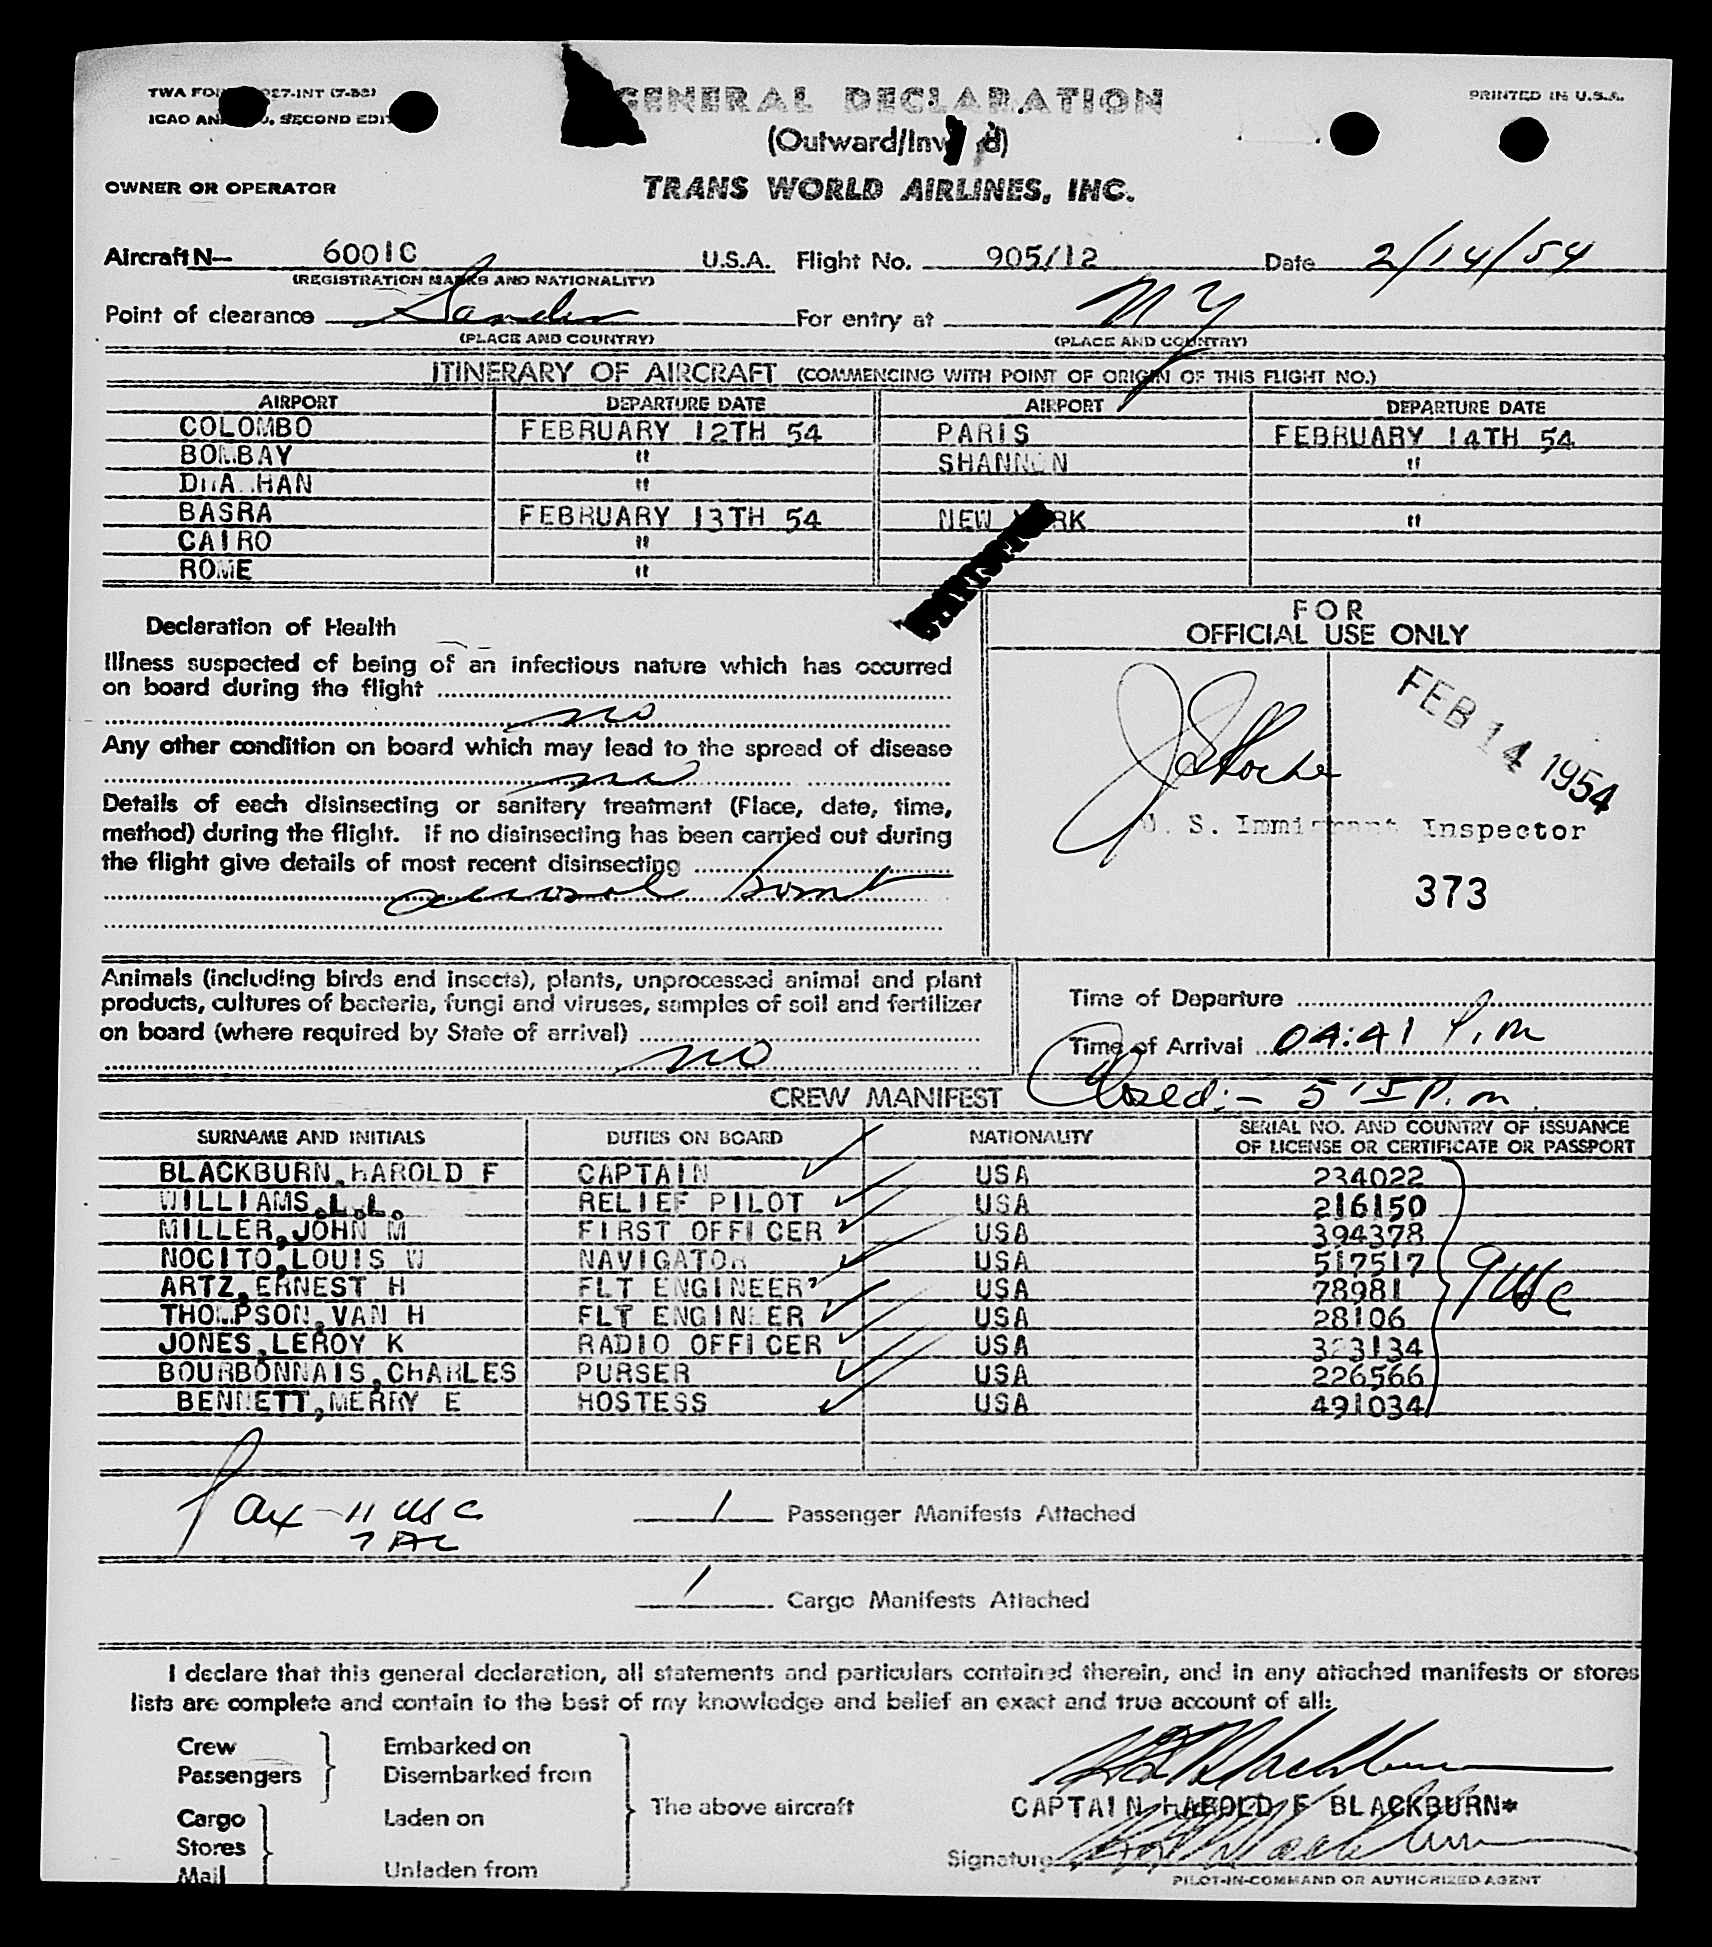 TWA FO 27-INT (7-53)
ICAO AN , SECOND EDIT
GENERAL DECLARATION
PRINTED IN U.S.A.
(Outward/Inw d)
OWNER OR OPERATOR
TRANS WORLD AIRLINES, INC.
Aircraft N— 6001C U.S.A. Flight No. 905/12 Date 2/14/54
(REGISTRATION MARKS AND NATIONALITY)
Point of clearance For entry at NY
(PLACE AND COUNTRY) (PLACE AND COUNTRY)
ITINERARY OF AIRCRAFT (COMMENCING WITH POINT OF ORIGIN OF THIS FLIGHT NO.)
AIRPORT DEPARTURE DATE AIRPORT DEPARTURE DATE
COLOMBO FEBRUARY 12TH 54 PARIS FEBRUARY 14TH 54
BOMBAY " SHANNON "
DHAHHAN "
BASRA FEBRUARY 13TH 54 NEW YORK "
CAIRO "
ROME "
Declaration of Health
FOR
OFFICIAL USE ONLY
Illness suspected of being of an infectious nature which has occurred
on board during the flight
no
Any other condition on board which may lead to the spread of disease
no
Details of each disinsecting or sanitary treatment (Place, date, time,
method) during the flight. If no disinsecting has been carried out during
the flight give details of most recent disinsecting
aerosol bomb
FEB 14 1954
U. S. Immigrant Inspector
373
Animals (including birds and insects), plants, unprocessed animal and plant
products, cultures of bacteria, fungi and viruses, samples of soil and fertilizer
on board (where required by State of arrival)
no
Time of Departure
Time of Arrival 04:41 P.m
Closed:- 5 15 P.m.
CREW MANIFEST
SURNAME AND INITIALS DUTIES ON BOARD NATIONALITY SERIAL NO. AND COUNTRY OF ISSUANCE
OF LICENSE OR CERTIFICATE OR PASSPORT
BLACKBURN,HAROLD F CAPTAIN USA 234022
WILLIAMS,L.L. RELIEF PILOT USA 216150
MILLER,JOHN M FIRST OFFICER USA 394378
NOCITO,LOUIS W NAVIGATOR USA 517517
ARTZ,ERNEST H FLT ENGINEER USA 78981
THOMPSON,VAN H FLT ENGINEER USA 28106
JONES,LEROY K RADIO OFFICER USA 323134
BOURBONNAIS,CHARLES PURSER USA 226566
BENNETT,MERRY E HOSTESS USA 491034
9 USC
Pax - 11 USC
7 AC
1 Passenger Manifests Attached
1 Cargo Manifests Attached
I declare that this general declaration, all statements and particulars contained therein, and in any attached manifests or stores
lists are complete and contain to the best of my knowledge and belief an exact and true account of all:
Crew
Passengers
Embarked on
Disembarked from
Cargo
Stores
Mail
Laden on
Unladen from
The above aircraft
H F Blackburn
CAPTAIN HAROLD F BLACKBURN*
Signature H F Blackburn
PILOT-IN-COMMAND OR AUTHORIZED AGENT